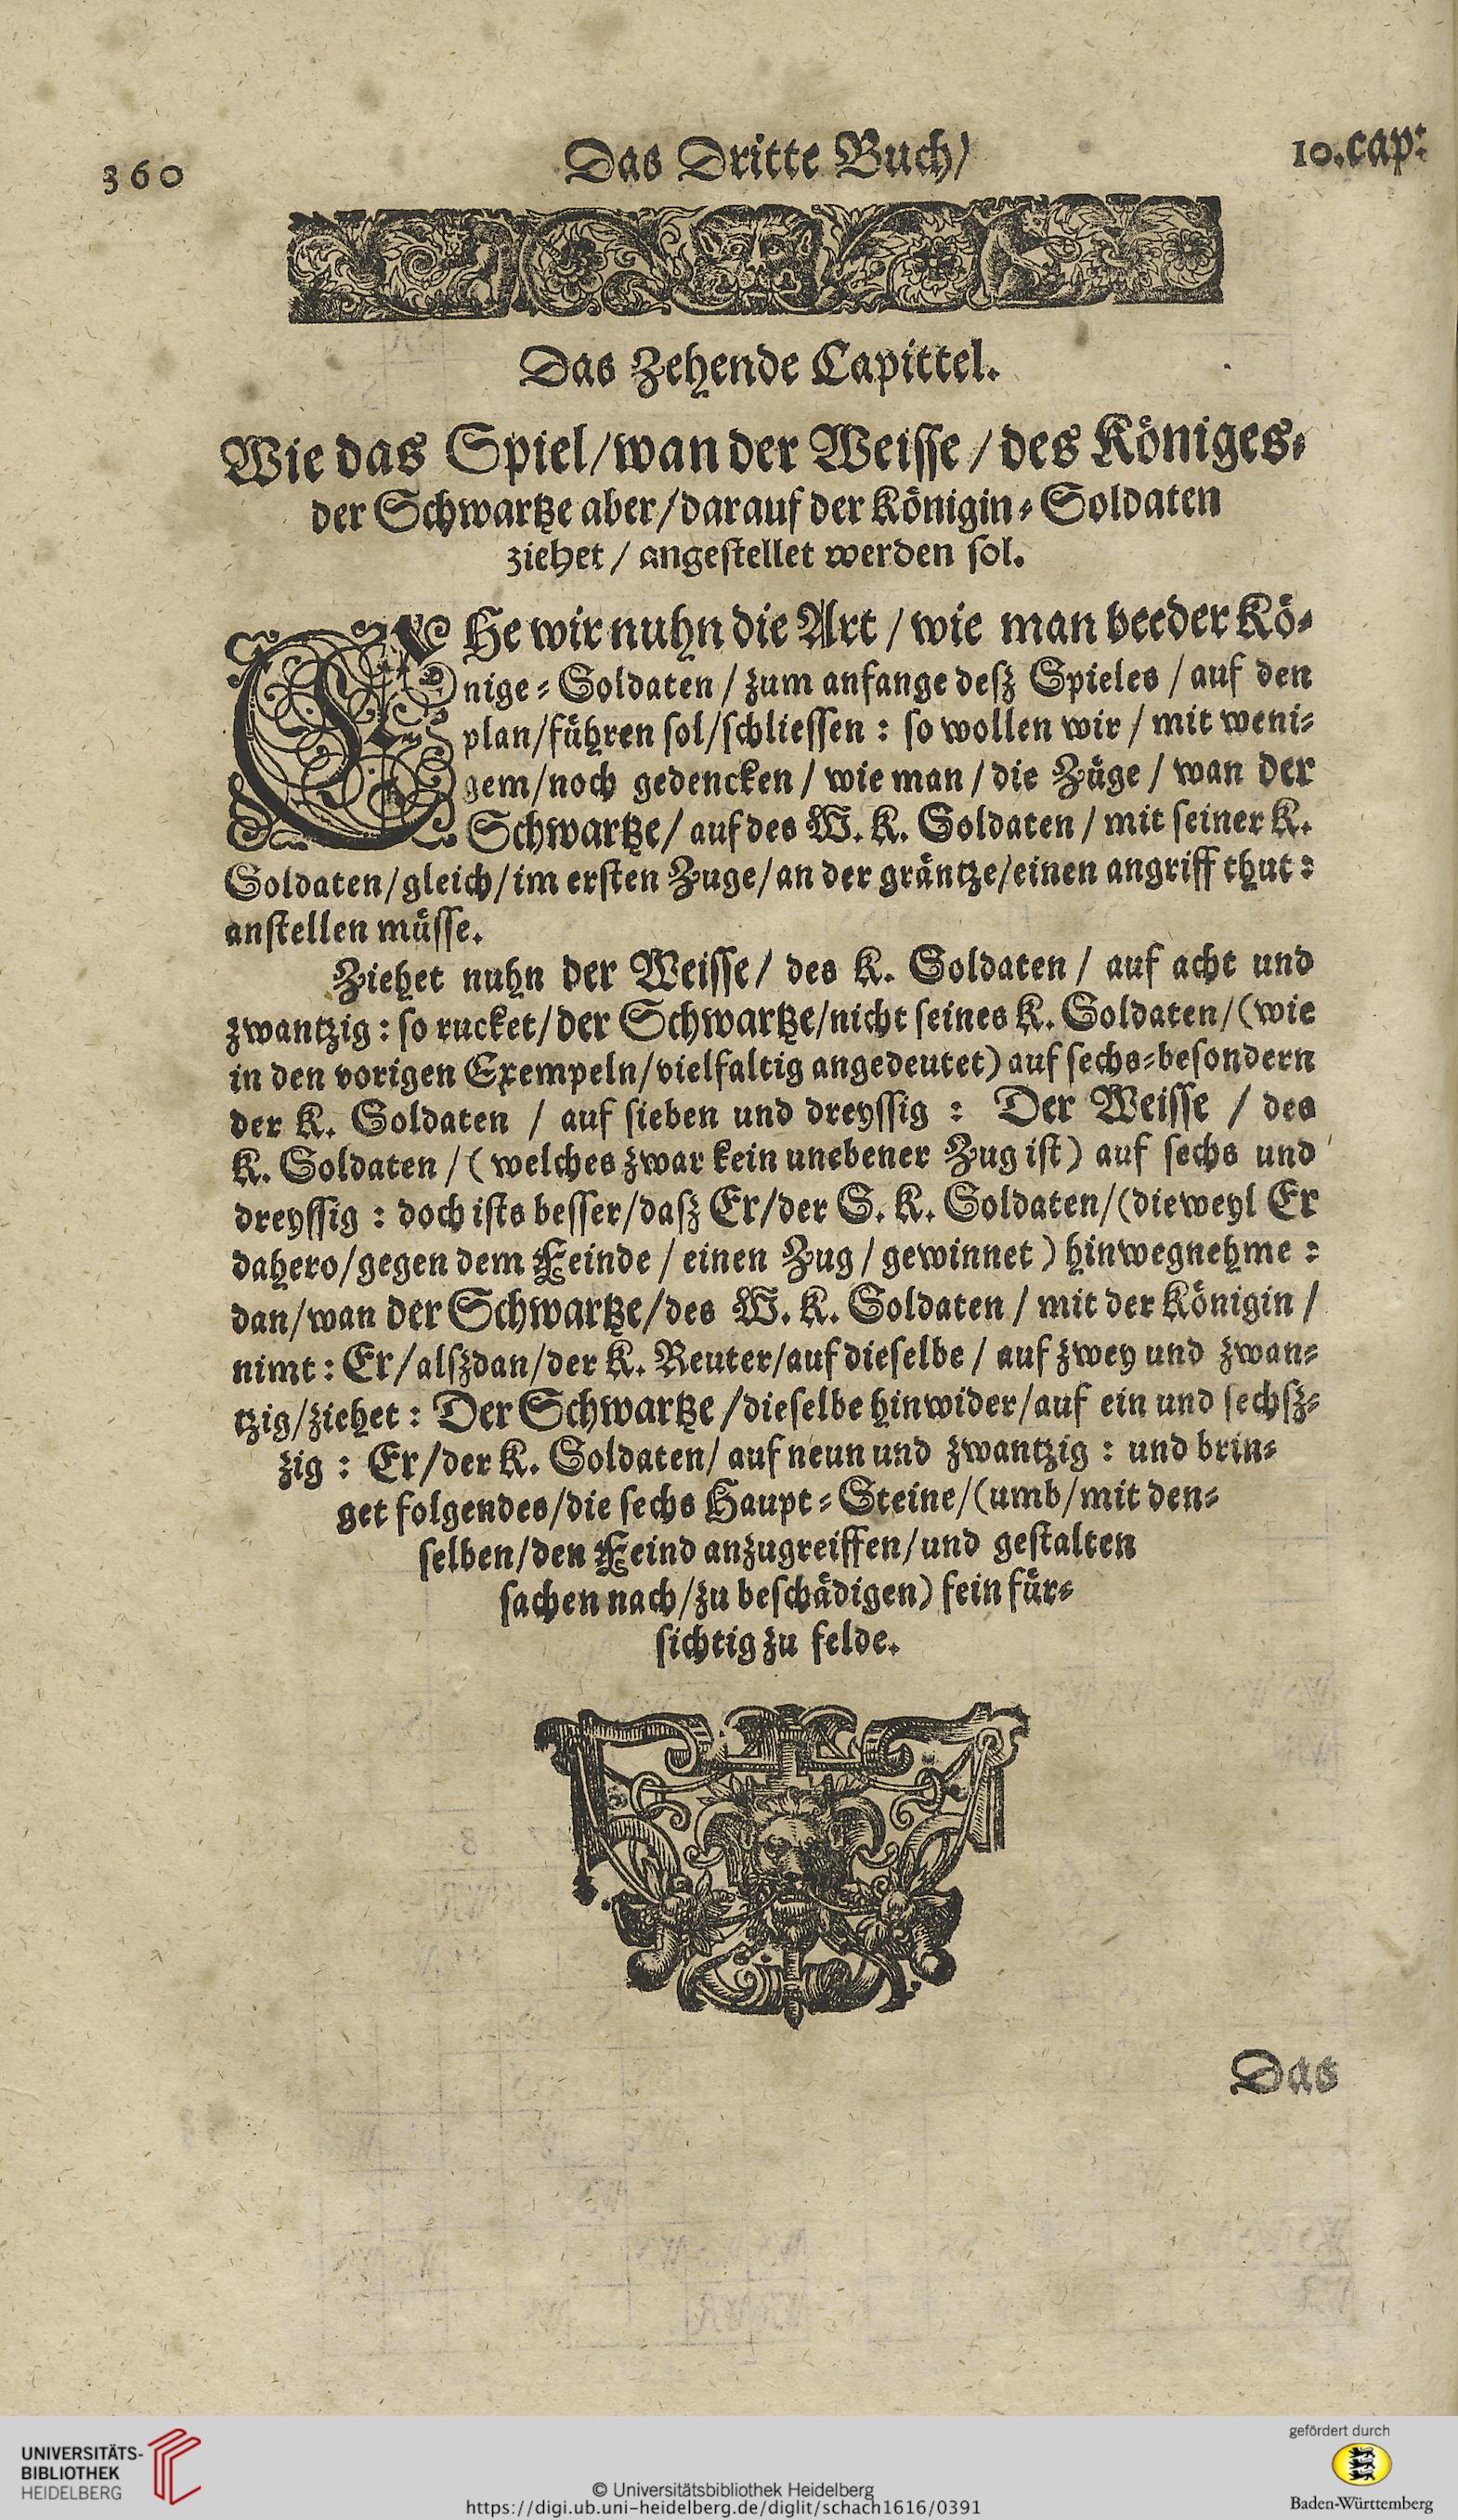 360
Das Dritte Buch/
10.cap:
Das Zehende Capittel.
Wie das Spiel/wan der Weisse/des Königes-
der Schwartze aber/darauf der Königin-Soldaten
ziehet/angestellet werden sol.
EHe wir nuhn die Art/wie man beeder Kö-
nige-Soldaten/zum anfange desz Spieles/auf den
plan/führen sol/schliessen: so wollen wir/mit weni-
gem/noch gedencken/wie man/die Züge/wan der
Schwartze/auf des W. K. Soldaten/mit seiner K.
Soldaten/gleich/im ersten Zuge/an der gräntze/einen angriff thut:
anstellen müsse.
Ziehet nuhn der Weisse/des K. Soldaten/auf acht und
zwantzig: so rucket/der Schwartze/nicht seines K. Soldaten/(wie
in den vorigen Exempeln/vielfaltig angedeutet) auf sechs-besondern
der K. Soldaten/auf sieben und dreyssig: Der Weisse/des
K. Soldaten/(welches zwar kein unebener Zug ist) auf sechs und
dreyssig: doch ists besser/dasz Er/der S. K. Soldaten/(dieweyl Er
dahero/gegen dem Feinde/einen Zug/gewinnet) hinwegnehme:
dan/wan der Schwartze/des W. K. Soldaten/mit der Königin/
nimt: Er/alszdan/der K. Reuter/auf dieselbe/auf zwey und zwan-
tzig/ziehet: Der Schwartze/dieselbe hinwider/auf ein und sechsz-
zig: Er/der K. Soldaten/auf neun und zwantzig: und brin-
get folgendes/die sechs Haupt-Steine/(umb/mit den-
selben/den Feind anzugreiffen/und gestalten
sachen nach/zu beschädigen) fein für-
sichtig zu felde.
Das
UNIVERSITÄTS-
BIBLIOTHEK
HEIDELBERG
© Universitätsbibliothek Heidelberg
https://digi.ub.uni-heidelberg.de/diglit/schach1616/0391
gefördert durch
Baden-Württemberg